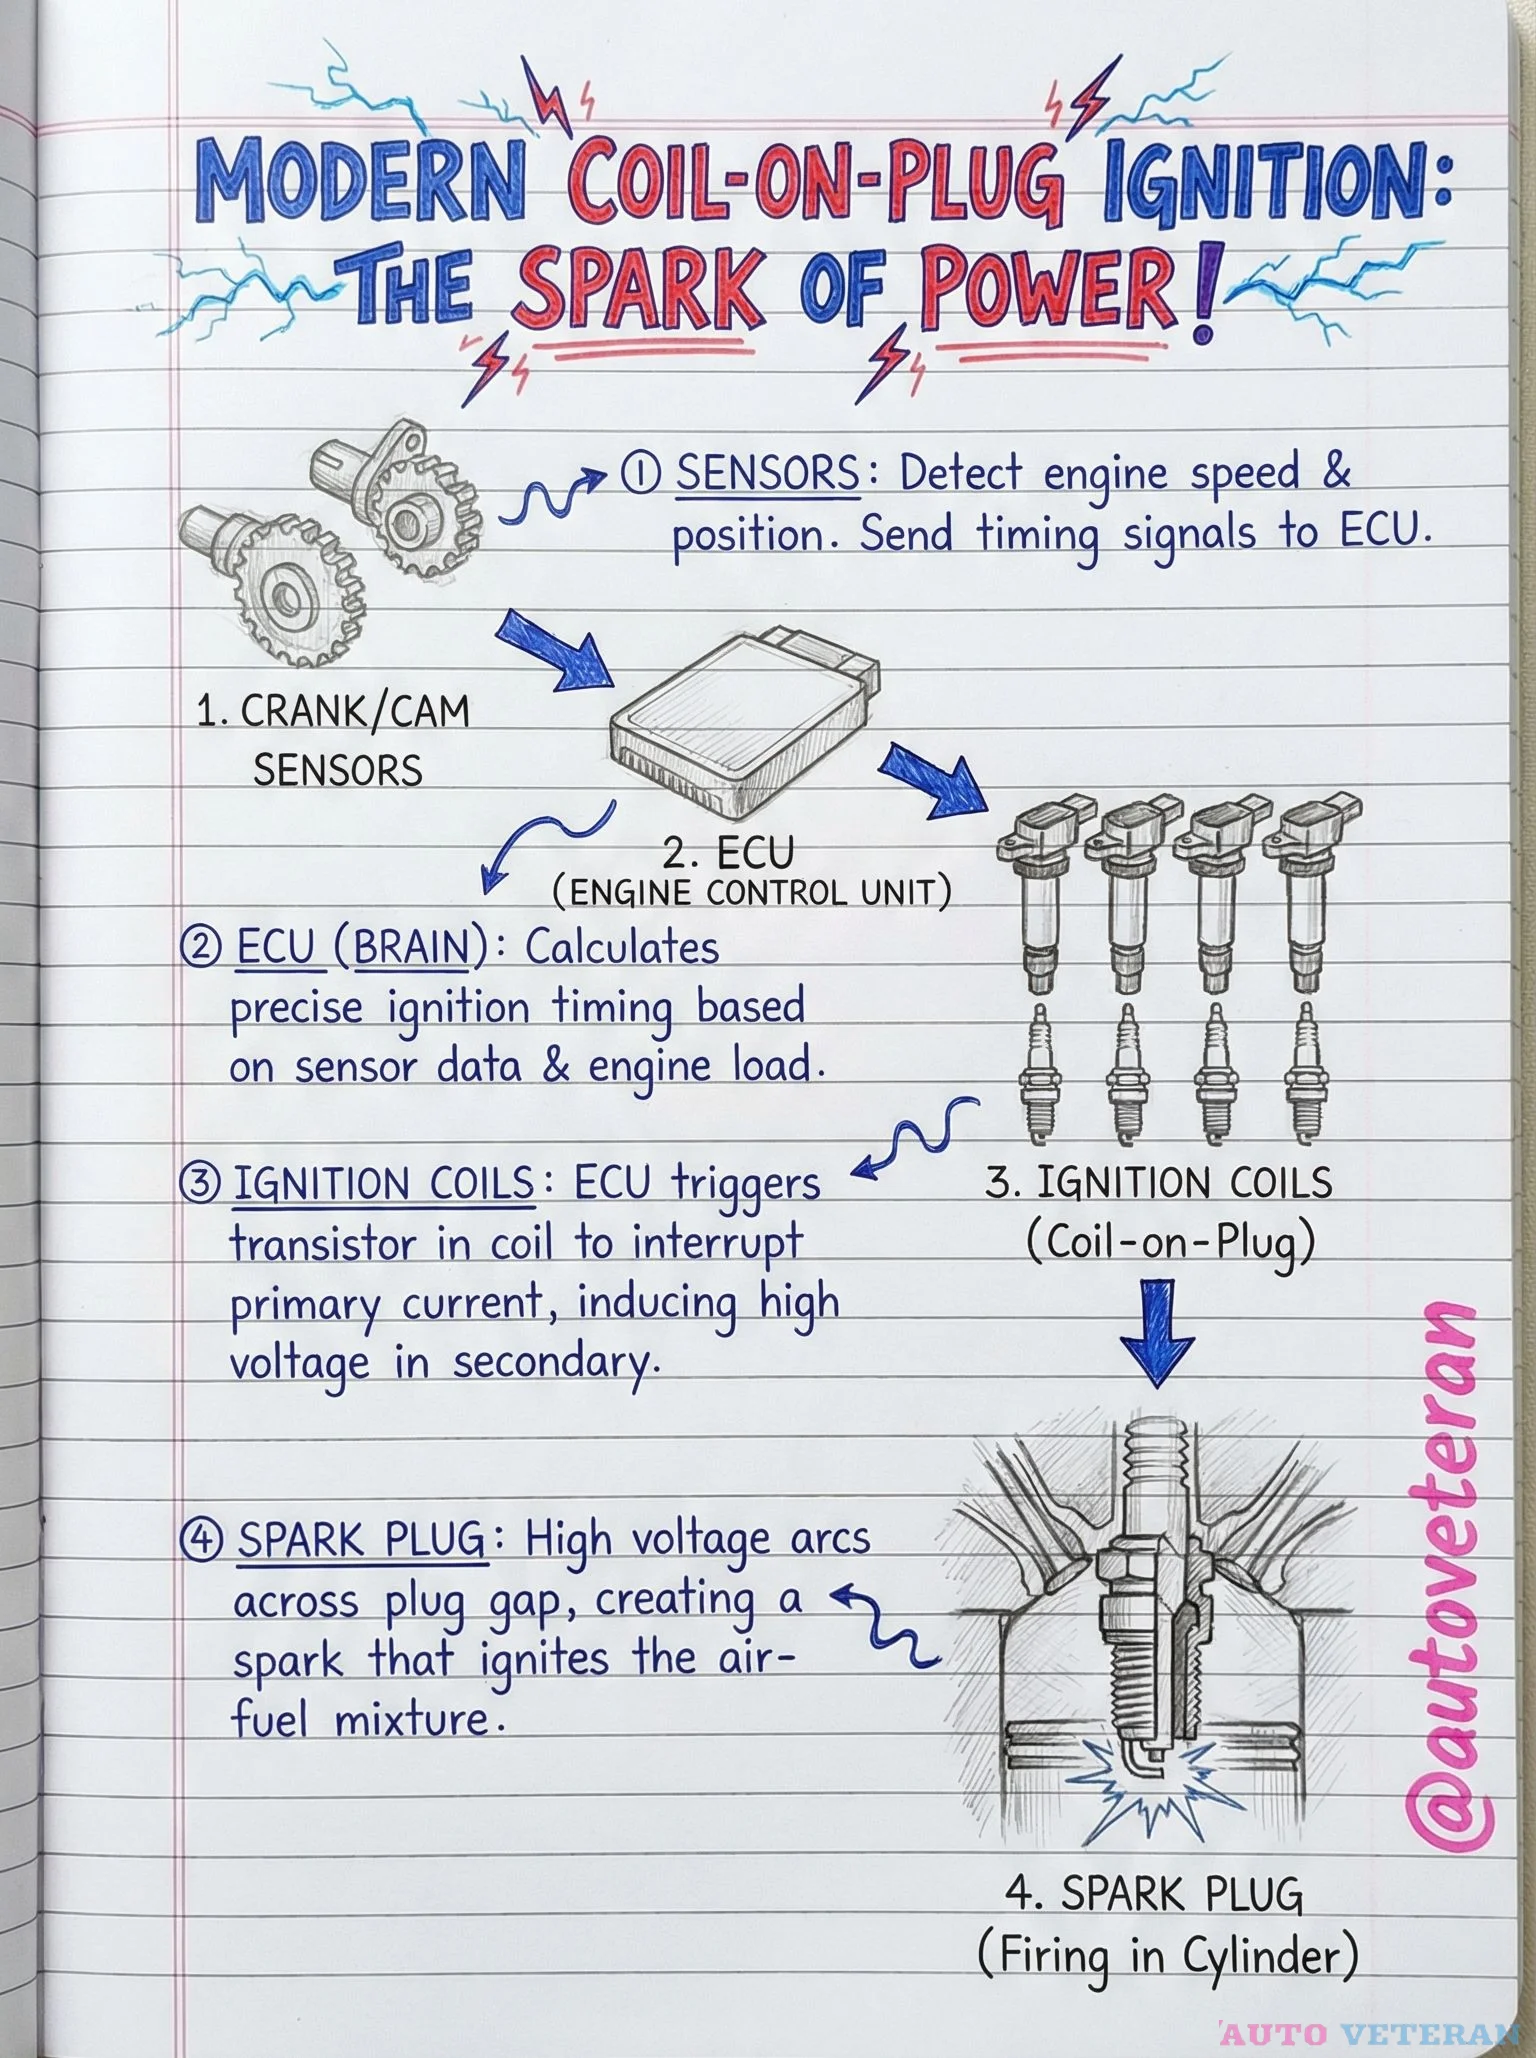 MODERN COIL-ON-PLUG IGNITION:
THE SPARK OF POWER!
① SENSORS: Detect engine speed &
position. Send timing signals to ECU.
1. CRANK/CAM
SENSORS
2. ECU
(ENGINE CONTROL UNIT)
② ECU (BRAIN): Calculates
precise ignition timing based
on sensor data & engine load.
③ IGNITION COILS: ECU triggers
transistor in coil to interrupt
primary current, inducing high
voltage in secondary.
3. IGNITION COILS
(Coil-on-Plug)
④ SPARK PLUG: High voltage arcs
across plug gap, creating a
spark that ignites the air-
fuel mixture.
4. SPARK PLUG
(Firing in Cylinder)
@autoveteran
AUTO VETERAN